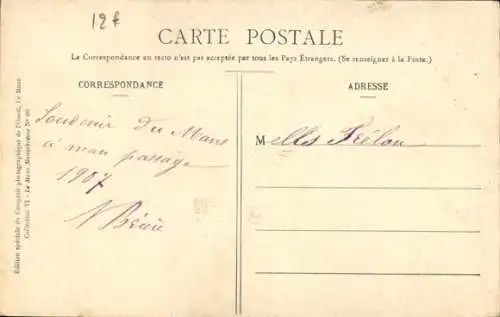 12 €
CARTE POSTALE
Le Correspondance au recto n'est pas acceptée par tous les Pays Etrangers. (Se renseigner à la Poste.)
CORRESPONDANCE
Souvenir du Mans
à mon passage
1907
ADRESSE
Melles
Edition spéciale du Comptoir photographique de l'Ouest, Le Mans
Collection VI - Le Mans